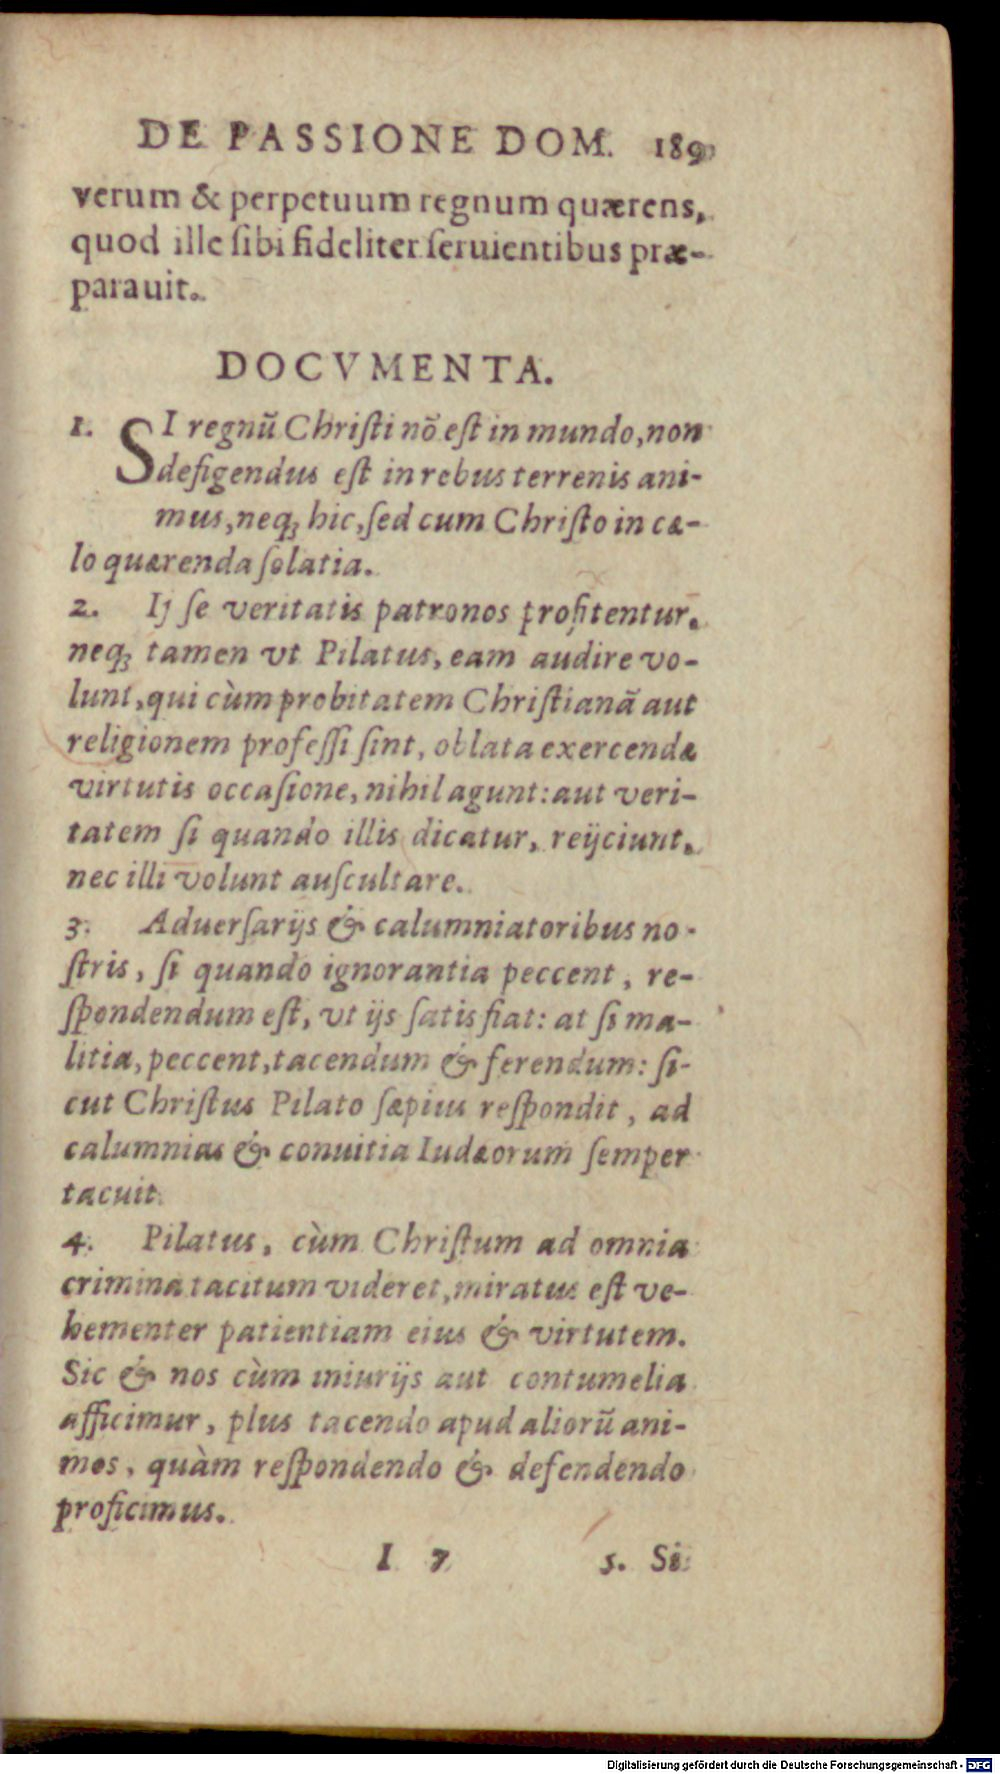 DE PASSIONE DOM. 189
verum & perpetuum regnum quærens,
quod ille ſibi fideliter ſeruientibus præ-
parauit.
DOCVMENTA.
1. SI regnũ Chriſti nõ eſt in mundo, non
defigendus eſt in rebus terrenis ani-
mus, neq; hic, ſed cum Chriſto in cæ-
lo quærenda ſolatia.
2. Ij ſe veritatis patronos profitentur,
neq; tamen vt Pilatus, eam audire vo-
lunt, qui cùm probitatem Chriſtianã aut
religionem profeſſi ſint, oblata exercendæ
virtutis occaſione, nihil agunt: aut veri-
tatem ſi quando illis dicatur, reijciunt,
nec illi volunt auſcultare.
3. Aduerſarijs & calumniatoribus no-
ſtris, ſi quando ignorantia peccent, re-
ſpondendum eſt, vt ijs ſatis fiat: at ſi ma-
litia, peccent, tacendum & ferendum: ſi-
cut Chriſtus Pilato ſæpius reſpondit, ad
calumnias & conuitia Iudæorum ſemper
tacuit.
4. Pilatus, cùm Chriſtum ad omnia
crimina tacitum videret, miratus eſt ve-
hementer patientiam eius & virtutem.
Sic & nos cùm iniurijs aut contumelia
afficimur, plus tacendo apud aliorũ ani-
mos, quàm reſpondendo & defendendo
proficimus.
I 7 5. Si
Digitalisierung gefördert durch die Deutsche Forschungsgemeinschaft - DFG